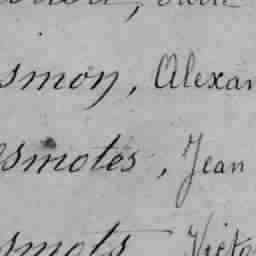 smon, Alexan
smotes, Jean
smots Victo